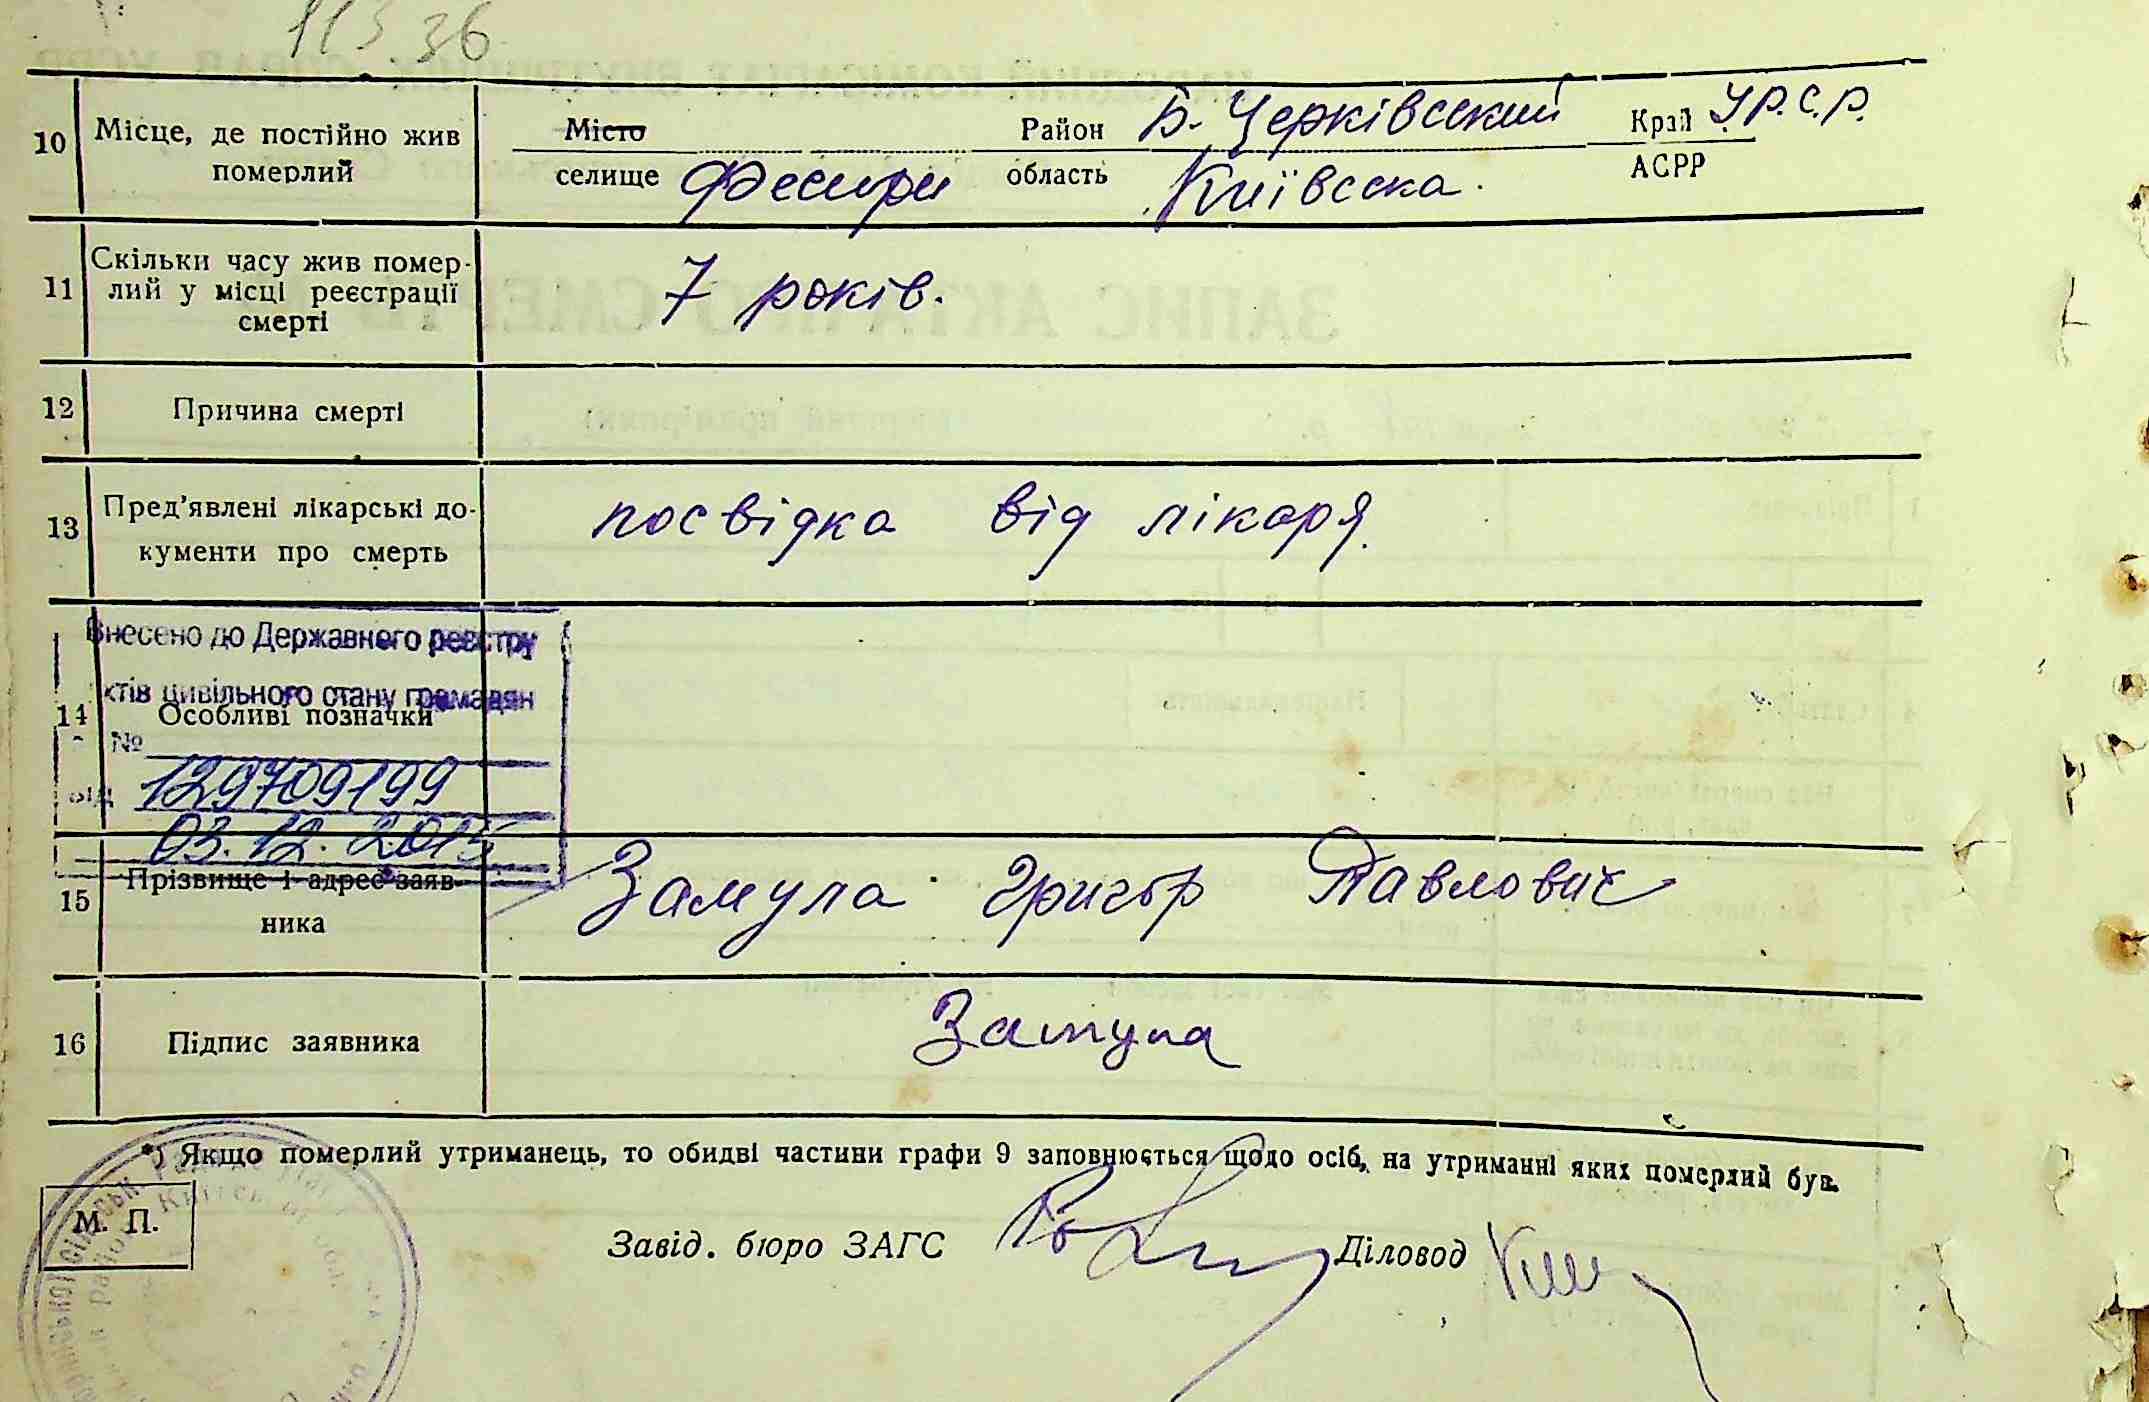 113 36
10 Місце, де постійно жив померлий
Місто Район Б. Церківський Край У.Р.С.Р.
селище Фесири область Київська. АСРР
11 Скільки часу жив помер-
лий у місці реєстрації
смерті
7 років.
12 Причина смерті
13 Пред'явлені лікарські до-
кументи про смерть
посвідка від лікаря.
Внесено до Державного реєстру
ктів цивільного стану громадян
14 Особливі позначки
№
129709199
від
03.12.2015
15 Прізвище і адрес заяв-
ника
Замула Григор Павлович
16 Підпис заявника
Замула
*) Якщо померлий утриманець, то обидві частини графи 9 заповнюється щодо осіб, на утриманні яких померлий був.
М. П.
Завід. бюро ЗАГС Діловод